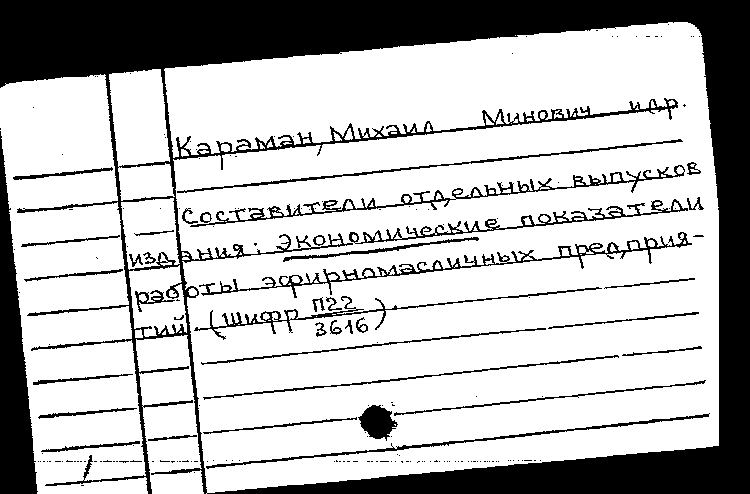 Караман, Михаил Минович и др.
составители отдельных выпусков
издания: Экономические показатели
работы эфирномасличных предприя-
тий. (Шифр П22/3616).